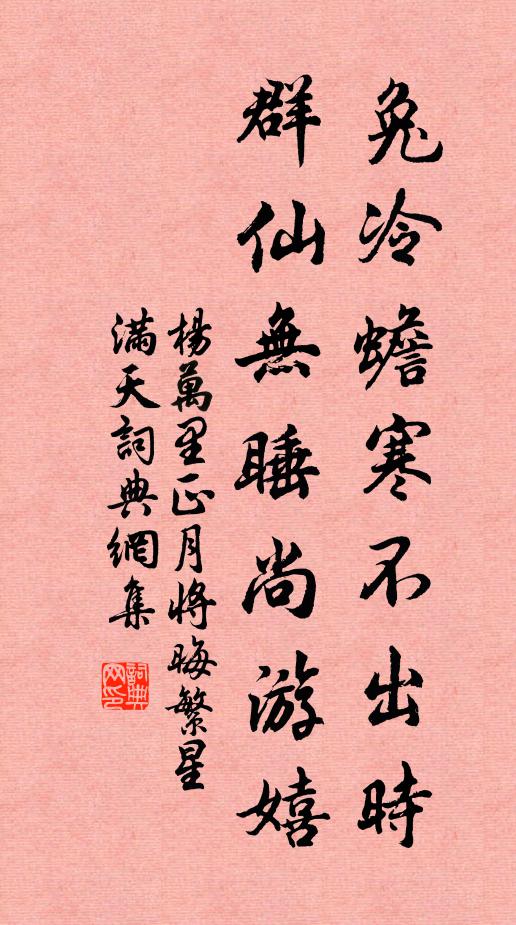 兔冷蟾寒不出時
群仙無睡尚游嬉
楊萬里正月將晦繁星
滿天詞典網集
詞典
网印